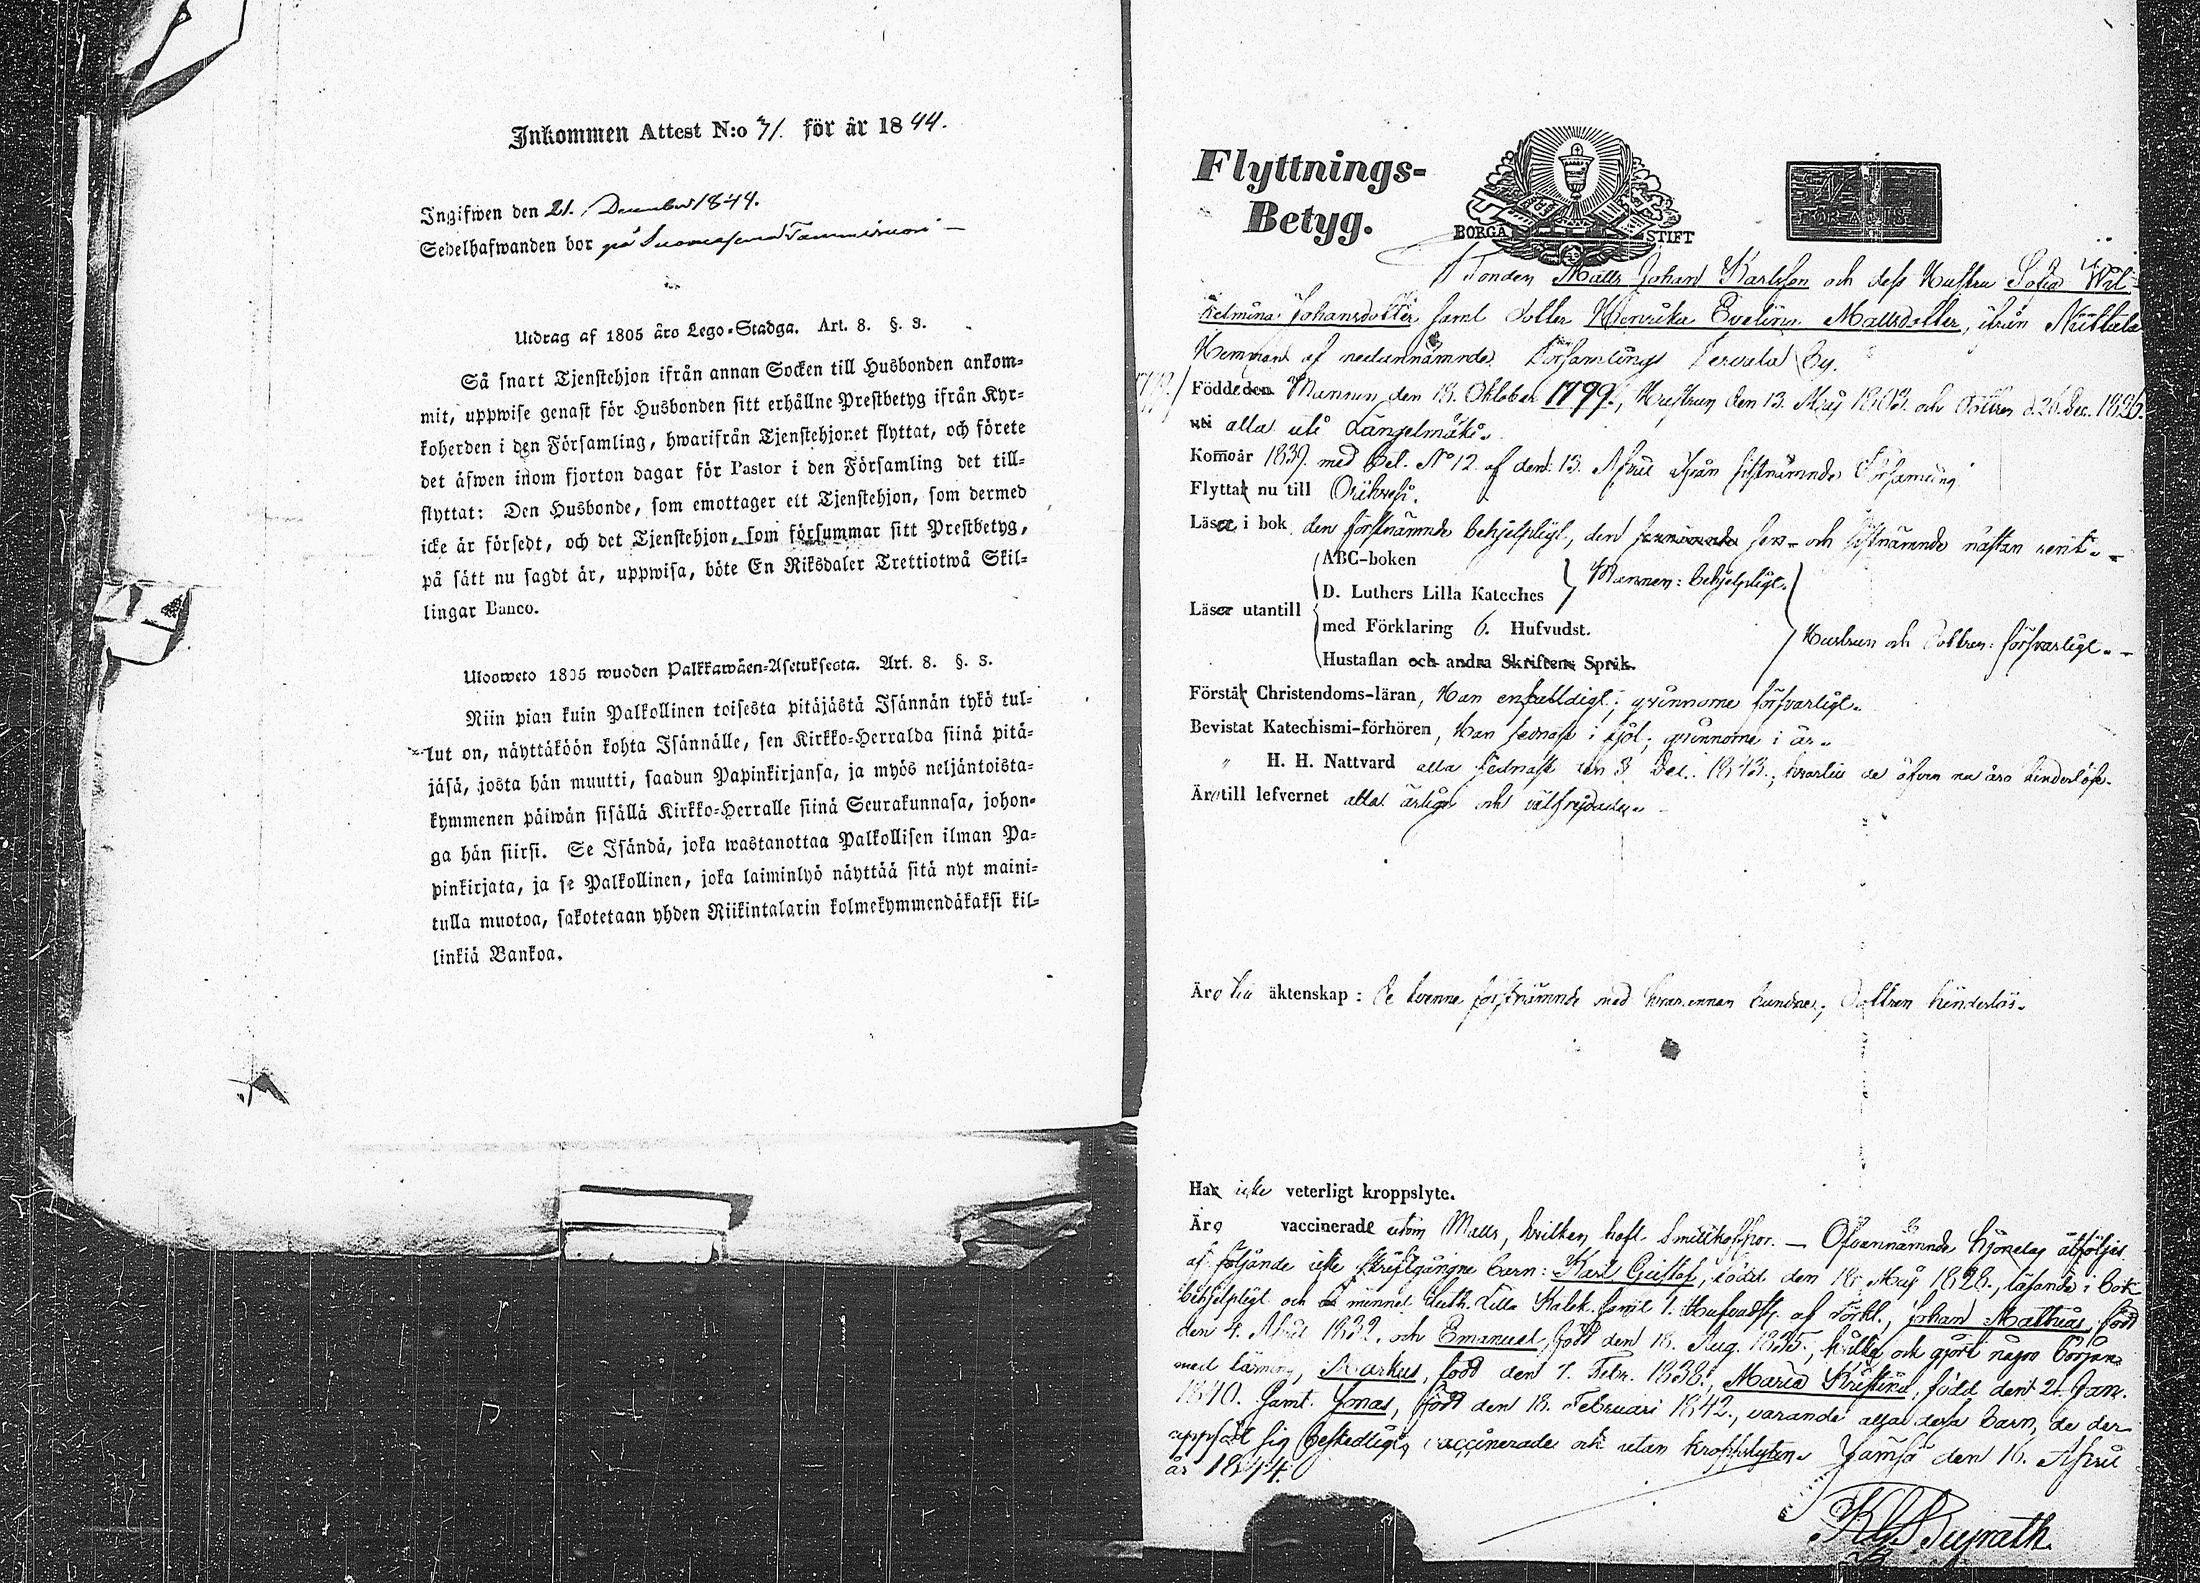 Inkommen Attest N:o 71. för år 1844.
Ingifwen den 21. December 1844.
Sedelhafwanden bor på
Utdrag af 1805 års Lego-Stadga. Art. 8. §. 3.
Så snart Tjenstehjon ifrån annan Socken till Husbonden ankom-
mit, uppwise genast för Husbonden sitt erhållne Prestbetyg ifrån Kyr-
koherden i den Församling, hwarifrån Tjenstehjonet flyttat, och förete
det äfwen inom fjorton dagar för Pastor i den Församling det till-
flyttat: Den Husbonde, som emottager ett Tjenstehjon, som dermed
icke är försedt, och det Tjenstehjon, som försummar sitt Prestbetyg,
på sätt nu sagdt är, uppwisa, böte En Riksdaler Trettiotwå Skil-
lingar Banco.
Uloosweto 1805 wuoden Palkkawäen-Asetuksesta. Art. 8. §. 3.
Niin pian kuin Palkollinen toisesta pitäjästä Isännän tykö tul-
lut on, näyttäköön kohta Isännälle, sen Kirkko-Herralda siinä pitä-
jäsä, josta hän muutti, saadun Papinkirjansa, ja myös neljäntoista-
kymmenen päiwän sisällä Kirkko-Herralle siinä Seurakunnasa, johon-
ga hän siirsi. Se Isändä, joka wastanottaa Palkollisen ilman Pa-
pinkirjata, ja se Palkollinen, joka laiminlyö näyttää sitä nyt maini-
tulla muotoa, sakotetaan yhden Riikintalarin kolmekymmendäkaksi kil-
linkiä Bankoa.
Flyttnings-
Betyg.
BORGÅ STIFT
Matts Johan Karlsson och dess Hustru Sofia Wil-
helmina Johansdotter samt dotter Henrika Evelina Mattsdotter, ifrån
Hemman af nedannämnde Församlings Jervelä By.
Födde den Mannen den 18. Oktober 1799., Hustrun den 13. Maj 1803. och dottren d. 26. Dec. 1826.
alla uti Längelmäki.
Kom år 1839. med Bet. No 12. af den 13. April ifrån sistnämnde Församling
Flyttat nu till Orihvesi.
Läsa i bok den förstnämnde behjelpligt, den sen- och sistnämnde nästan rent.
ABC-boken
D. Luthers Lilla Kateches
Mannen: behjelpligt.
Läser utantill
med Förklaring 6. Hufvudst.
Hustrun och Dottren: försvarligt.
Hustaflan och andra Skriftens Språk.
Förstår Christendoms-läran, Han enfaldigt; qvinnorna försvarligt.
Bevistat Katechismi-förhören, Han sednast i fjol; qvinnorna i år.
" H. H. Nattvard alla sednast den 3 Dec. 1843., hvartill de äfven nu äro hinderlöse.
Äro till lefvernet alla ärliga och välfrejdade.
Äro till äktenskap: De tvenne förstnämnde med hvarannan bundne; Dottren hinderlös.
Har icke veterligt kroppslyte.
Äro vaccinerade utom Matts, hvilken haft Smittkoppor. — Ofvannämnde hjonelag åtföljes
af följande icke skriftgångne barn: Karl Gustaf, född den 18 Maj 1828., läsande i bok
behjelpligt och ur minnet Luth. Lilla Katek. samt 1. Hufvudst. af Förkl., Johan Mathias, född
den 4. April 1832. och Emanuel, född den 18. Aug. 1835., hvilka och gjort någon början
med läsning, Markus, född den 7. Febr. 1838., Maria Kristina, född den 21. Jan.
1840. samt Jonas, född den 18. Februari 1842., varande alla dessa barn, de der
uppfört sig beskedligt, vaccinerade och utan kroppslyten. Jämsä den 16. April
år 1844.